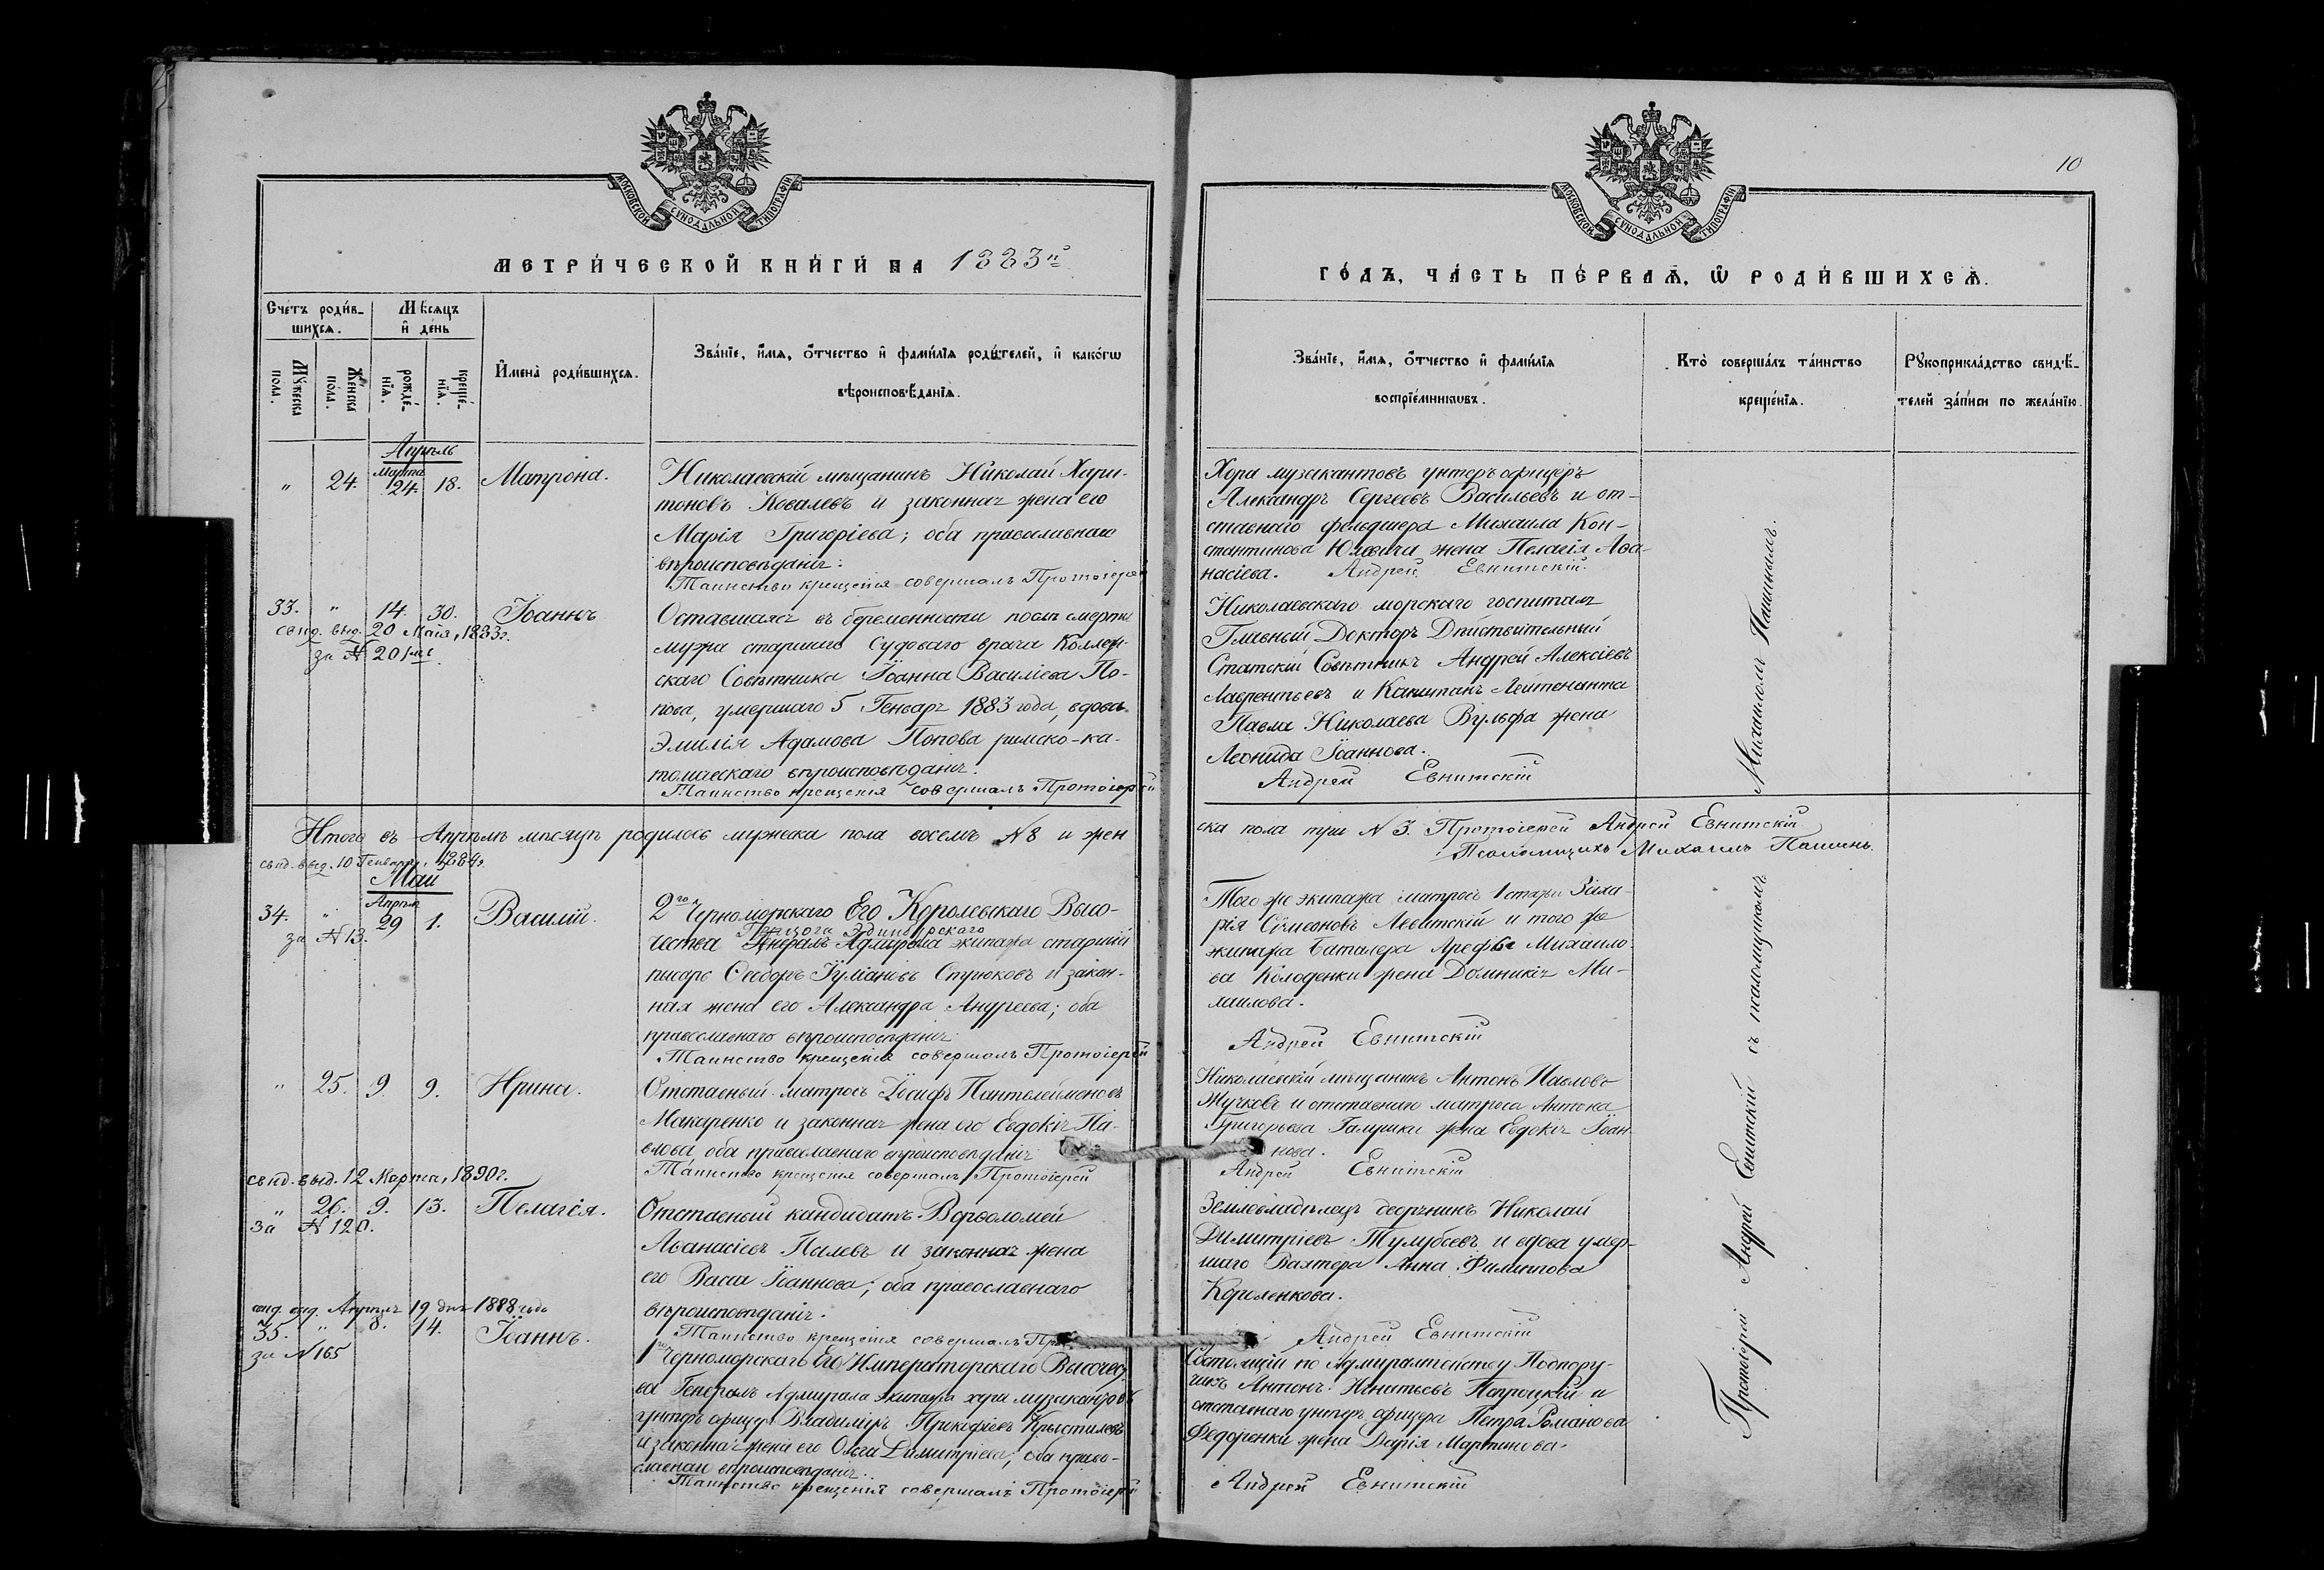 МОСКОВСКОЙ СѴНОДАЛЬНОЙ ТИПОГРАФІИ
МЕТРИ́ЧЕСКОЙ КНИ́ГИ НА 1883й
Сче́тъ роди́в-
шихся.
Мѣсяцъ
и҆ де́нь
Мꙋжеска
по́ла.
Женска
по́ла.
рожде́-
нїѧ.
креще́-
нїѧ.
И҆мена̀ роди́вшихсѧ.
Зва́нїе, и҆́мѧ, ѻ҆́тчество и҆ фами́лїѧ роди́телей, и҆ како́гѡ
вѣроисповѣ́данїѧ.
Апрѣль
„ 24. Марта 24. 18. Матрона.
Николаевскій мѣщанинъ Николай Хари-
тоновъ Ковалевъ и законная жена его
Марія Григоріева; оба православнаго
вѣроисповѣданія:
Таинство крещенія совершалъ Протоіерей
33. „ 14. 30. Іоаннъ
свид. выд. 20 Мая, 1883г.
за № 201
Оставшаяся въ беременности послѣ смерти
мужа старшаго Судоваго врача Коллеж-
скаго Совѣтника Іоанна Василіева По-
пова, умершаго 5 Генваря 1883 года, вдова
Эмилія Адамова Попова римско-ка-
толическаго вѣроисповѣданія.
Таинство крещенія совершалъ Протоіерей
Итого въ Апрѣлѣ мѣсяцѣ родилось мужеска пола восемь № 8 и жен
свид. выд. 10 Генваря, 1884г.
Май
34. „ Апрѣля 29 1. Василій.
за № 13.
2го Черноморскаго Его Королевскаго Высо-
Герцога Эдинбургскаго
чества Генералъ Адмирала экипажа старшій
писарь Ѳеодоръ Іуліановъ Струковъ и закон-
ная жена его Александра Андреева; оба
православнаго вѣроисповѣданія
Таинство крещенія совершалъ Протоіерей
„ 25. 9. 9. Ирина.
Отставный матросъ Іосифъ Пантелеймоновъ
Макаренко и законная жена его Евдокія Па-
влова, оба православнаго вѣроисповѣданія
Таинство крещенія совершалъ Протоіерей
свид. выд. 12 Марта, 1890г.
„ 26. 9. 13. Пелагія.
за № 120.
Отставный кандидатъ Варѳоломей
Аѳанасіевъ Палевъ и законная жена
его Васса Іоаннова; оба православнаго
вѣроисповѣданія.
Таинство крещенія совершалъ Про
свид. выд. Апрѣля 19 дня 1888 года
35. „ 8. 14. Іоаннъ.
за № 165
1го Черноморскаго Его Императорскаго Высочест
ва Генералъ Адмирала экипажа хора музыкантовъ
унтеръ офицеръ Владиміръ Прокофіевъ
и законная жена его Ольга Димитріева; оба право-
славнаго вѣроисповѣданія.
Таинство крещенія совершалъ Протоіерей
10
МОСКОВСКОЙ СѴНОДАЛЬНОЙ ТИПОГРАФІИ
ГО́ДЪ, ЧА́СТЬ ПЕ́РВАѦ, Ѡ҆ РОДИ́ВШИХСѦ.
Зва́нїе, и҆́мѧ, ѻ҆́тчество и҆ фами́лїѧ
воспрїе́мникѡвъ.
Кто̀ соверша́лъ та́инство
креще́нїѧ.
Рꙋкоприкла́дство свидѣ́-
телей за́писи по жела́нїю.
Хора музакантовъ унтеръ офицеръ
Александръ Сергеевъ Васильевъ и от-
ставнаго фельдшера Михаила Кон-
стантинова Юревича жена Пелагія Аѳа-
насіева. Андрей Евнитскій.
Николаевскаго морскаго госпиталя
Главный Докторъ Дѣйствительный
Статскій Совѣтникъ Андрей Алексіевъ
Лаврентьевъ и Капитанъ Лейтенанта
Павла Николаева Вульфа жена
Леонида Іоаннова.
Андрей Евнитскій
ска пола три № 3. Протоіерей Андрей Евнитскій
Псаломщикъ Михаилъ Пашинъ.
Того же экипажа матросъ 1 статьи Заха-
рія Сѵмеоновъ Левитскій и того же
экипажа Баталера Арефы Михаило
ва Колоденки жена Домникія Ми-
хаилова.
Андрей Евнитскій
Николаевскій мѣщанинъ Антонъ Павловъ
Жучковъ и отставнаго матроса Антона
Григорьева Галушки жена Евдокія Іоан
нова.
Андрей Евнитскій
Землевладѣлецъ дворянинъ Николай
Димитріевъ Тулубьевъ и вдова умер-
шаго Вахтера Анна Филиппова
Короленкова.
Андрей Евнитскій
Состоящій по Адмиралтейству Подпору-
чикъ Антонъ Игнатьевъ и
отставнаго унтеръ офицера Петра Романова
Федоренки жена Дарія Мартинова.
Андрей Евнитскій
Протоіерей Андрей Евнитскій съ псаломщикомъ Михаиломъ Пашинымъ.